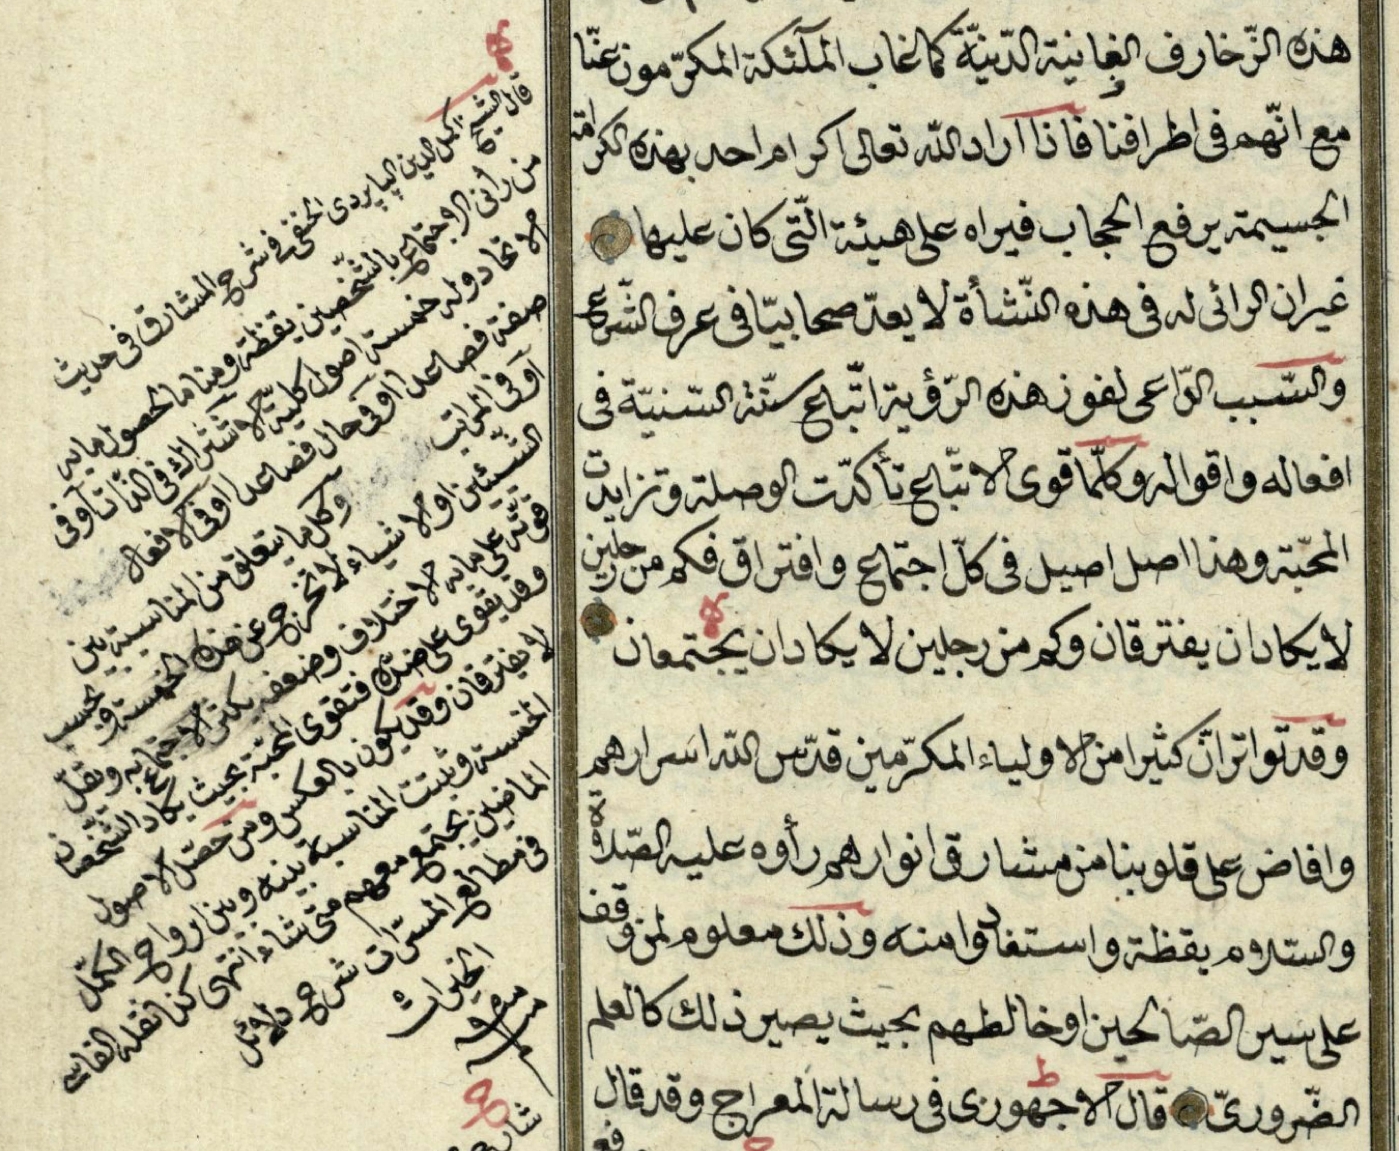 هذه الزّخارف الفانية الدّنيّة كما غاب الملٓئكة المكرّمون عنّا
مع انّهم فى اطرافنا فاذا اراد اللّه تعالى اكرام احد بهذه الكرامة
الجسيمة يرفع الحجاب فيراه على هيئة الّتى كان عليها
غير ان الرائى له فى هذه النّشأة لا يعدّ صحابيّا فى عرف الشّرع
والسّبب الدّاعى لفوز هذه الرّؤية اتّباع سنّته السّنيّة فى
افعاله واقواله وكلّما قوى الاتّباع تأكدّت الوصلة وتزايدت
المحبّة وهذا اصل اصيل فى كلّ اجتماع وافتراق فكم من رجلين
لا يكادان يفترقان وكم من رجلين لا يكادان يجتمعان
وقد تواتر انّ كثيرا من الاولياء المكرّمين قدّس اللّه اسرارهم
وافاض على قلوبنا من مشارق انوارهم رأوه عليه الصّلاة
والسّلام يقظة واستفادوا منه وذلك معلوم لمن وقف
على سير الصّالحين او خالطهم بحيث يصير ذلك كالعلم
الضّرورىّ قال الاجهورى فى رسالة المعراج وقد قال
قال الشيخ اكمل الدين البابردى الحنفى فى شرح المشارق فى حديث
من رأنى الاجتماع بالشّخصين يقظة ومناما لحصول ما به
الاتحاد وله خمسة اصول كليّة الاشتراك فى الذّات او فى
صفة فصاعدا او فى حال فصاعدا او فى الافعال
او فى المراتب وكل ما يتعلق من المناسبة بين
الشيئين او الاشياء لا تخرج عن هذه الخمسة وبحسب
قوّته على ما به الاختلاف وضعفه يكثر الاجتماع به ويقلّ
وقد يقوى على ضدّه فتقوى المحبّة بحيث يكاد الشّخصان
لا يفترقان وقد يكون بالعكس ومن حصّل الاصول
الخمسة وثبتت المناسبة بينه وبين ارواح الكمّل
الماضين يجتمع معهم متى شاء انتهى كذا نقله الفاسى
فى مطالع المسرّات شرح دلائل
الخيرات